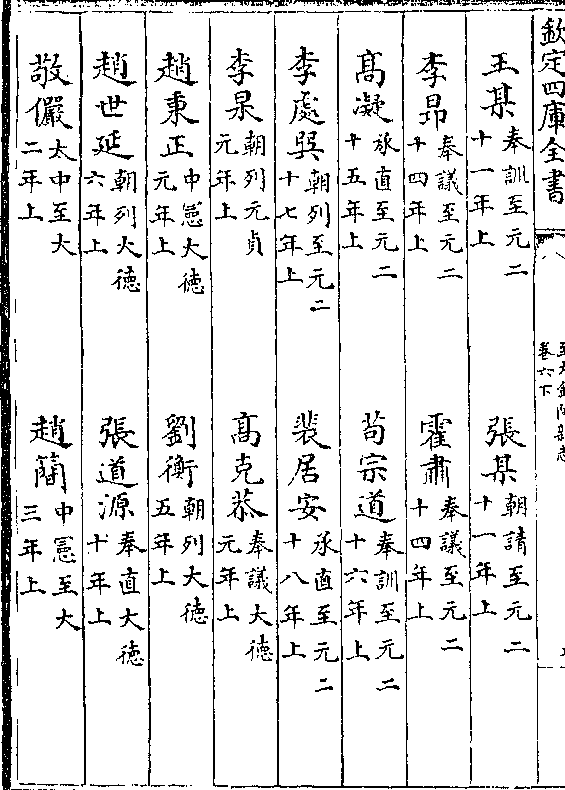 欽定四庫全書
至大金陵新志
卷六下
王某奉訓至元二十一年上 張某朝請至元二十一年上
李昂奉議至元二十四年上 霍肅奉議至元二十四年上
髙凝承直至元二十五年上 苟宗道奉訓至元二十六年上
李處巽朝列至元二十七年上 裴居安承直至元二十八年上
李杲朝列元貞元年上 髙克恭奉議大德元年上
趙秉正中憲大德元年上 劉衡朝列大德五年上
趙世延朝列大德六年上 張道源奉直大德十年上
敬儼太中至大二年上 趙簡中憲至大三年上